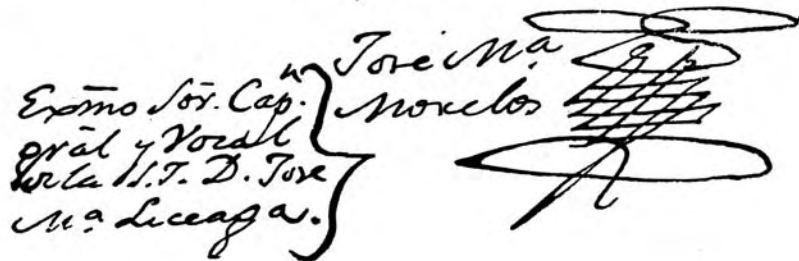 José Mª
Morelos
Exmo Sor. Capn.
gral y Vocal
de la S. J. D. Jose
Mª Liceaga.